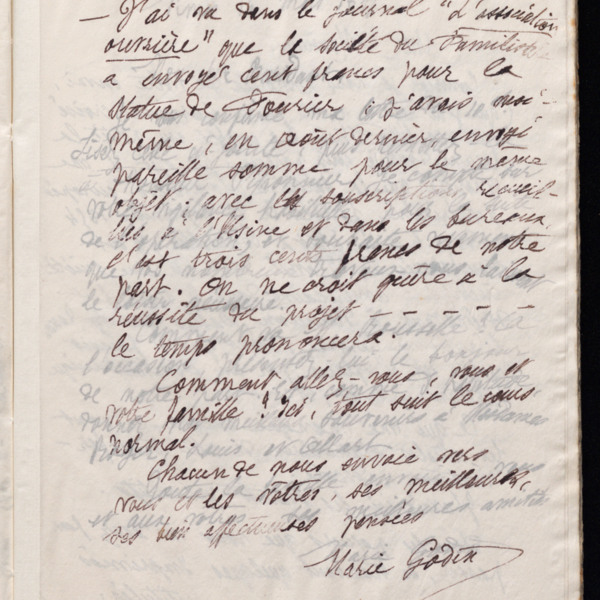 — J'ai vu dans le journal "L'association
ouvrière" que la Société du Familistère
a envoyé cent francs pour la
statue de Fourier ; j'avais moi-
même, en août dernier, envoyé
pareille somme pour le même
objet ; avec les souscriptions recueil-
lies à l'Usine et dans les bureaux,
c'est trois cents francs de notre
part. On ne croit guère à la
réussite du projet — — — — —
le temps prononcera.
Comment allez-vous, vous et
votre famille ? Ici, tout suit le cours
normal.
Chacun de nous envoie vers
vous et les vôtres, ses meilleures,
ses bien affectueuses pensées
Marie Godin